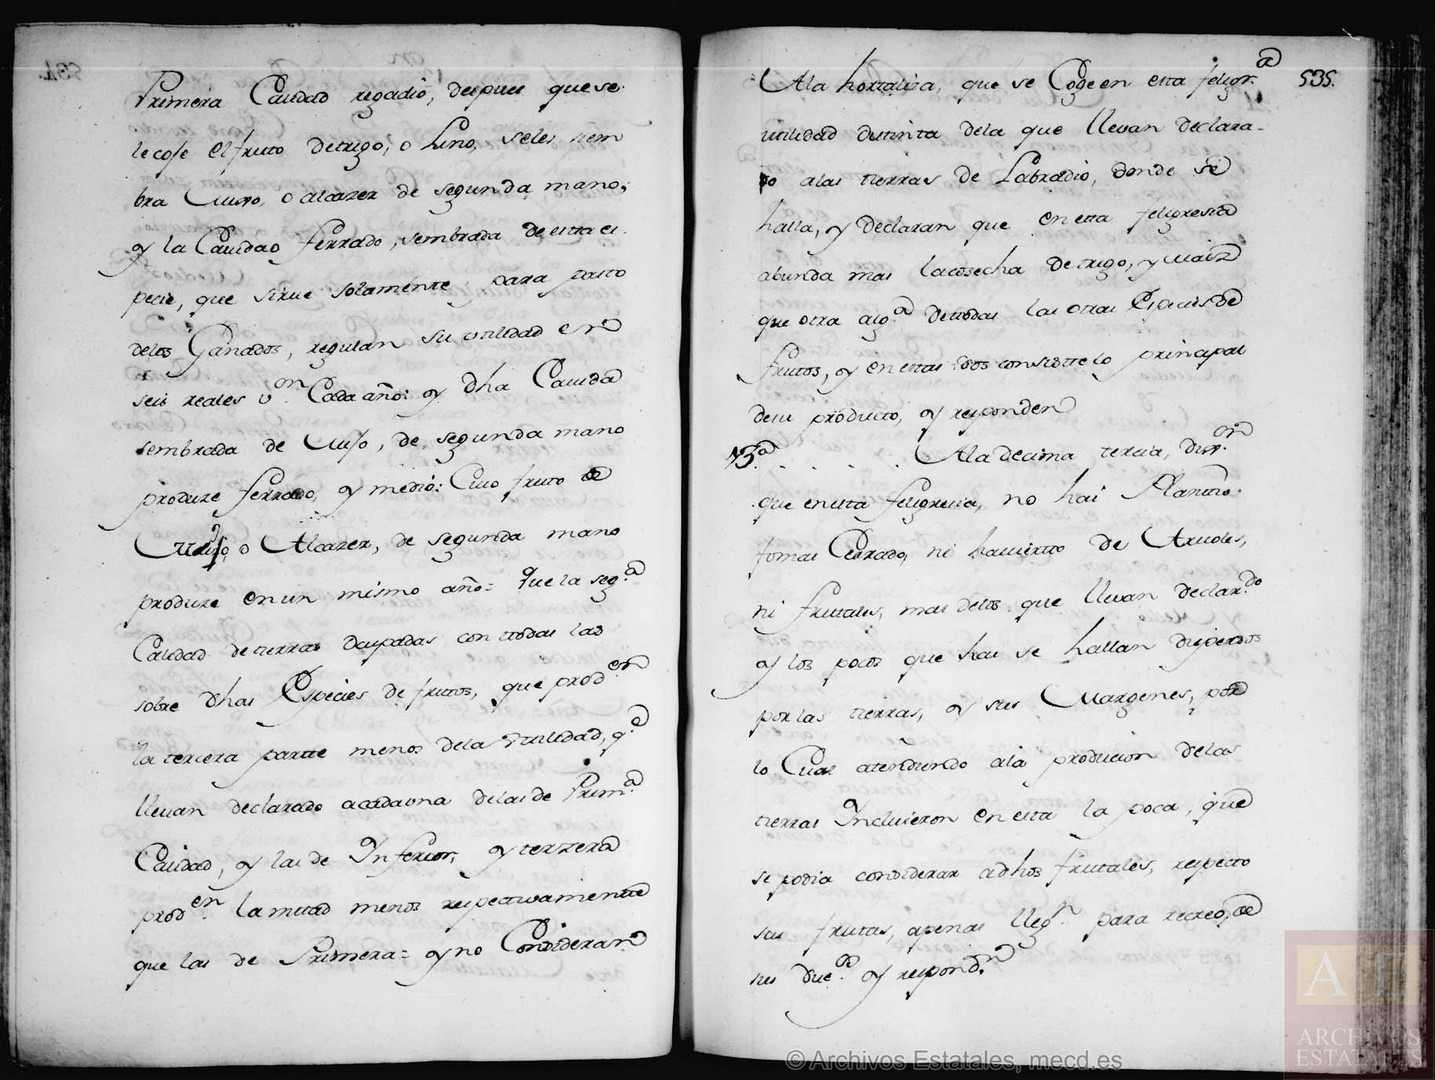 Primera Calidad regadio, despues que se
le cose el fruto de trigo, o Lino, seles siem
bra Nuso, o alcazer de segunda mano;
y la Calidad ferrado, sembrada de esta es
pecie, que sirue solamente para pasto
delos Ganados, regulan su utilidad en
seis reales v.on Cada año: y dha Calida
sembrada de Nuso, de segunda mano
produze ferrado, y medio: Cuio fruto de
Nuso, o Alcazer, de segunda mano
produze en un mismo año = Que la seg.a
Calidad de tierras ocupadas con ttodas las
sobre dhas Especies de frutos, que prod.en
la tercera partte menos dela Vtilidad, q.e
lleuan declarado a cada una delas de Prim.a
Calidad, y las de Ynferior, y terzera
prod.en la mitad menos respectiuamente
que las de Primera = y no Consideran
535.
A la hortaliza, que se Coge en esta feligr.a
utilidad distinta dela que lleuan declara-
do alas tierras de Labradio, donde se
halla, y declaran que en esta feligresia
abunda mas la cosecha de trigo, y maiz
que otra alg.a de todas las otras Especies de
frutos, y en estas dos consiste lo principal
de su producto, y responden
13.a . . . . . A la decima tercia, Dix.on
que en esta feligresia, no hai Plantio
tomas Cerrado, ni hauierto de Arboles,
ni frutales, mas delos que lleuan declar.do
y los pocos que hai se hallan dispersos
por las tierras, y sus Margenes, por
lo Cual atendiendo ala producion delas
tierras Yncluieron en esta la poca, que
se podia considerar a dhos frutales, respecto
sus frutas, apenas lleg.n para recreo, de
sus due.s y respond.n
© Archivos Estatales, mecd.es
AE
ARCHIVOS
ESTATALES